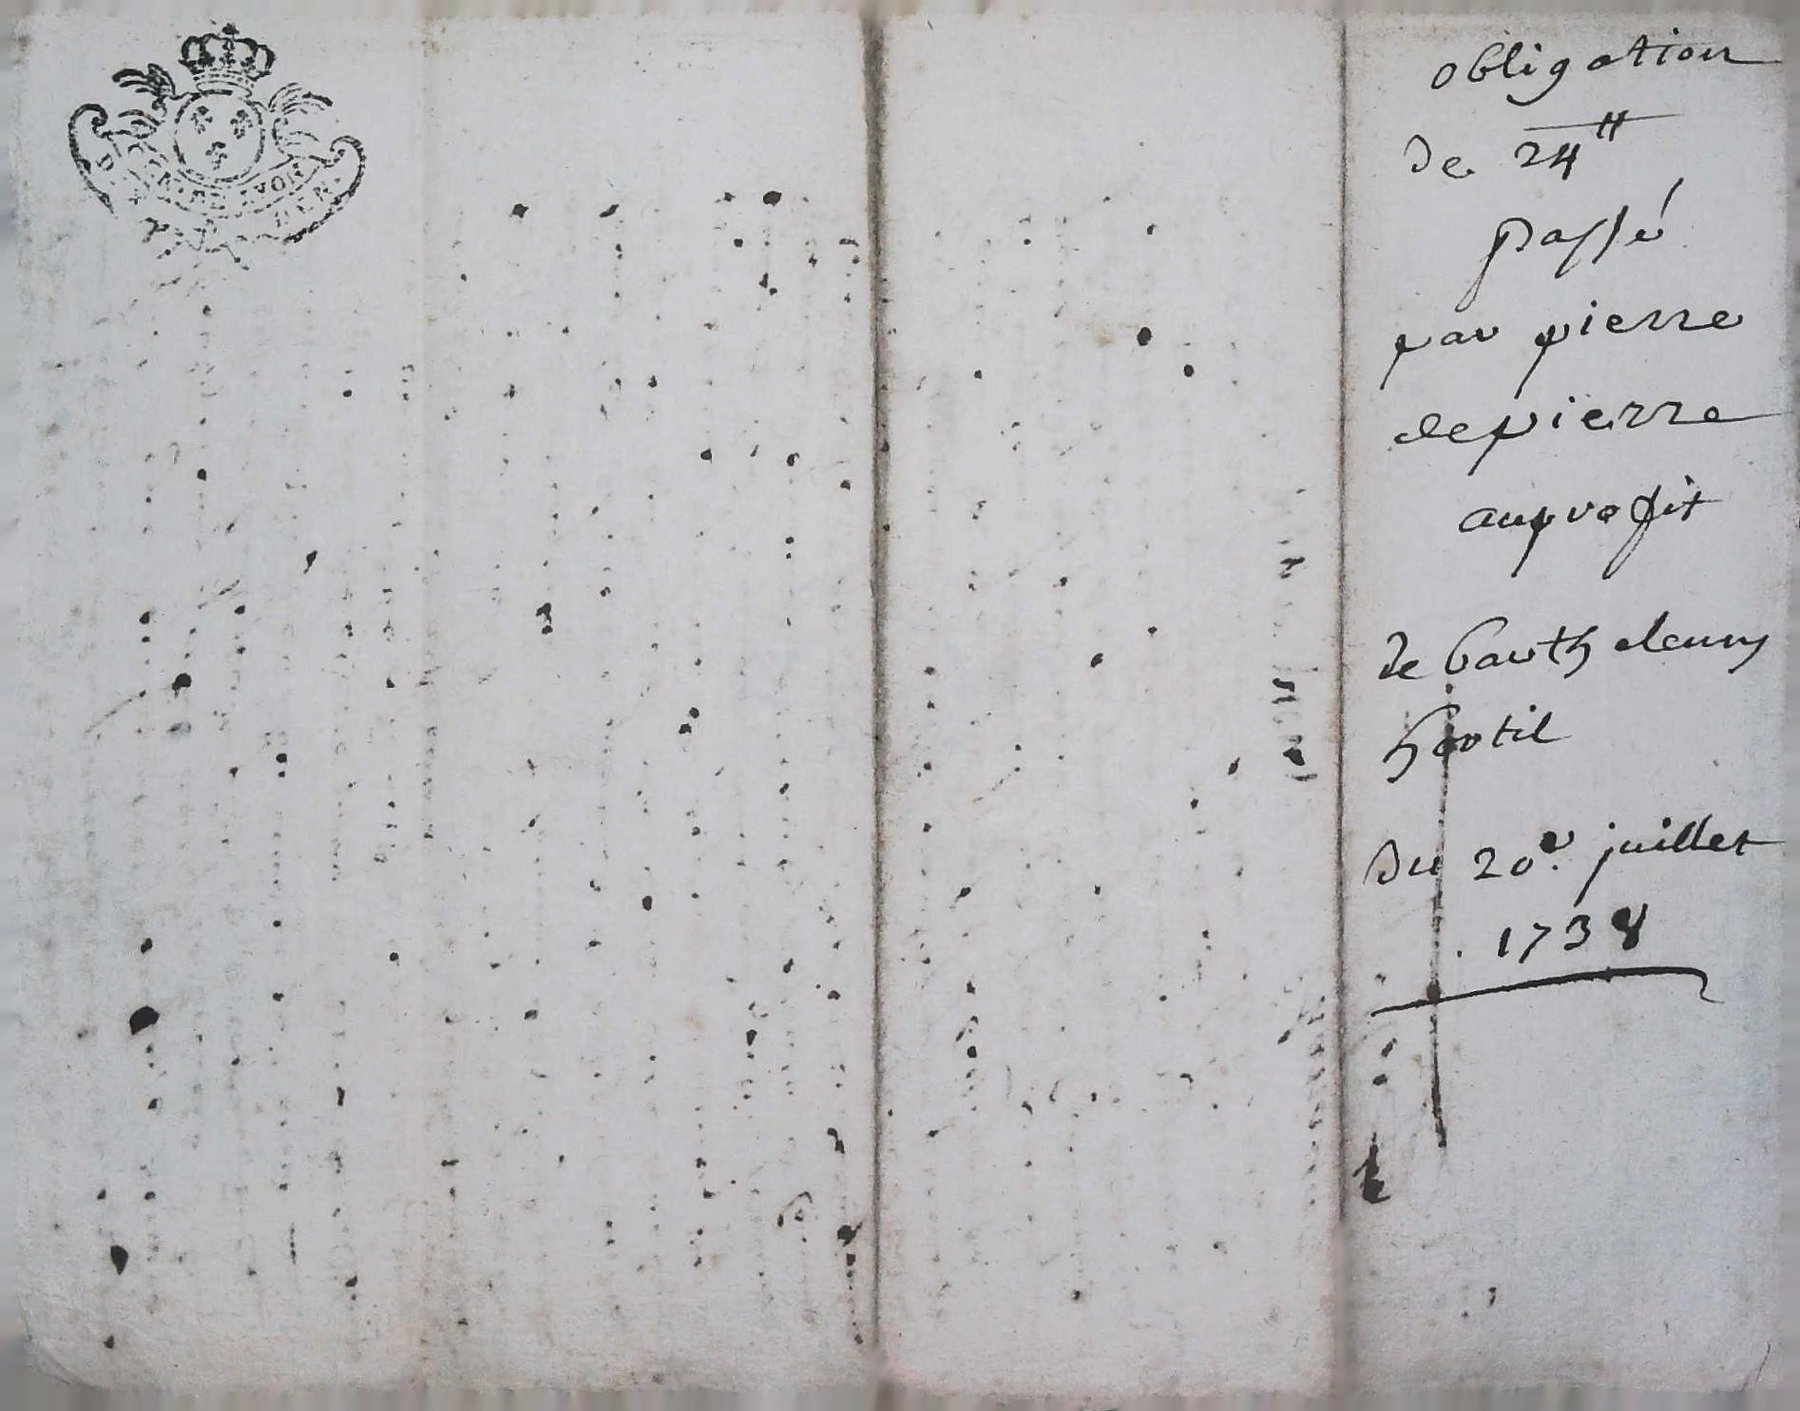 obligation
de 24 ₶
passé
par pierre
depierre
auproffit
de barthelemy
hortil
du 20e. juillet
. 1738